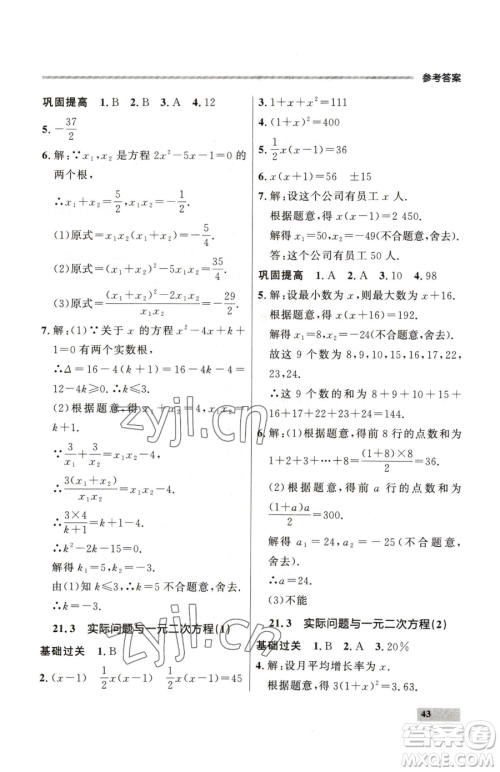 参考答案
巩固提高 1.B 2.B 3.A 4.12
5.-37/2
6.解:∵x₁,x₂是方程2x²-5x-1=0的
两个根,
∴x₁+x₂=5/2,x₁x₂=-1/2.
(1)原式=x₁x₂(x₁+x₂)=-5/4.
(2)原式=(x₁+x₂)²-x₁x₂=35/4
(3)原式=((x₁+x₂)²-2x₁x₂)/(x₁x₂)=-29/2
7.解:(1)∵关于x的方程x²-4x+k+
1=0有两个实数根,
∴Δ=16-4(k+1)=16-4k-4=
12-4k≥0.∴k≤3.
(2)根据题意,得x₁+x₂=4,x₁x₂=k+1.
∵3/x₁+3/x₂=x₁x₂-4,
∴3(x₁+x₂)/(x₁x₂)=x₁x₂-4.
∴(3×4)/(k+1)=k+1-4.
∴k²-2k-15=0.
解得k₁=5,k₂=-3.
由(1)知k≤3,k₁=5不合题意,舍去.
∴k=-3.
21.3 实际问题与一元二次方程(1)
基础过关 1.B
2.(x-1) 1/2x(x-1) 1/2x(x-1)=45
3.1+x+x²=111
4.(1+x)²=400
5.1/2x(x-1)=36
6.x(x+1)=56 ±15
7.解:设这个公司有员工x人.
根据题意,得x(x-1)=2 450.
解得x₁=50,x₂=-49(不合题意,舍去).
答:这个公司有员工50人.
巩固提高 1.A 2.A 3.10 4.98
5.解:设最小数为x,则最大数为x+16.
根据题意,得x(x+16)=192.
解得x₁=8,x₂=-24(不合题意,舍去).
故这9个数为8,9,10,15,16,17,22,
23,24.
∴这9个数的和为8+9+10+15+
16+17+22+23+24=144.
6.解:(1)根据题意,得前8行的点数和为
1+2+3+…+8=(1+8)×8/2=36.
(2)根据题意,得前a行的点数和为
(1+a)a/2=300.
解得a₁=24,a₂=-25(不合题意,舍去).
∴a=24.
(3)不能
21.3 实际问题与一元二次方程(2)
基础过关 1.B 2.A 3.20%
4.解:设月平均增长率为x.
根据题意,得3(1+x)²=3.63.
43
zyjl.cn
zyjl.cn
答案圈
MXQE.COM